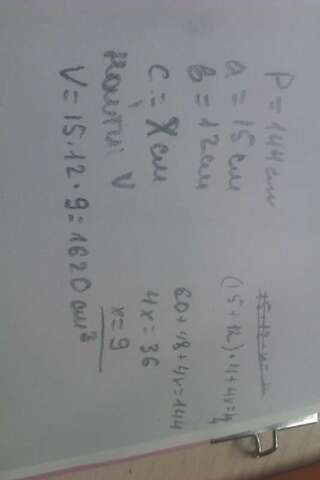 P = 144 cm
a = 15 см
в = 12 см
c = x см
Найти: V
V = 15 · 12 · 9 = 1620 cm³
(15 + 12) · 4 + 4x = 4
60 + 48 + 4x = 144
4x = 36
x = 9